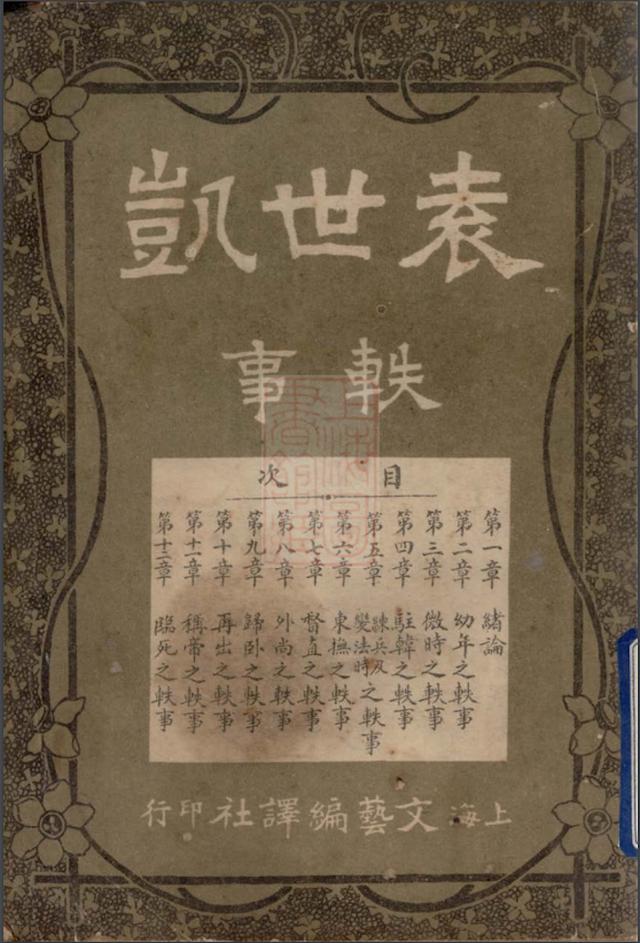 袁世凱
軼事
目次
第一章 緒論
第二章 幼年之軼事
第三章 微時之軼事
第四章 駐韓之軼事
第五章 練兵及變法時之軼事
第六章 東撫之軼事
第七章 督直之軼事
第八章 外尚之軼事
第九章 歸卧之軼事
第十章 再出之軼事
第十一章 稱帝之軼事
第十二章 臨死之軼事
上海文藝編譯社印行